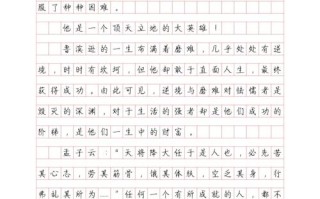 服了种种困难。
他是一个顶天立地的大英雄！
鲁滨逊的一生布满着磨难，几乎处处有逆
境，时时有坎坷，但他却敢于直面人生，最终
获得成功。由此可见，逆境与磨难对怯懦者是
毁灭的深渊，对于生活的强者却是他们成功的
阶梯，是他们一生中的财富。
孟子云：“天将降大任于是人也，必先苦
其心志，劳其筋骨，饿其体肤，空乏其身，行
弗乱其所为……”任何一个有所成就的人，都不